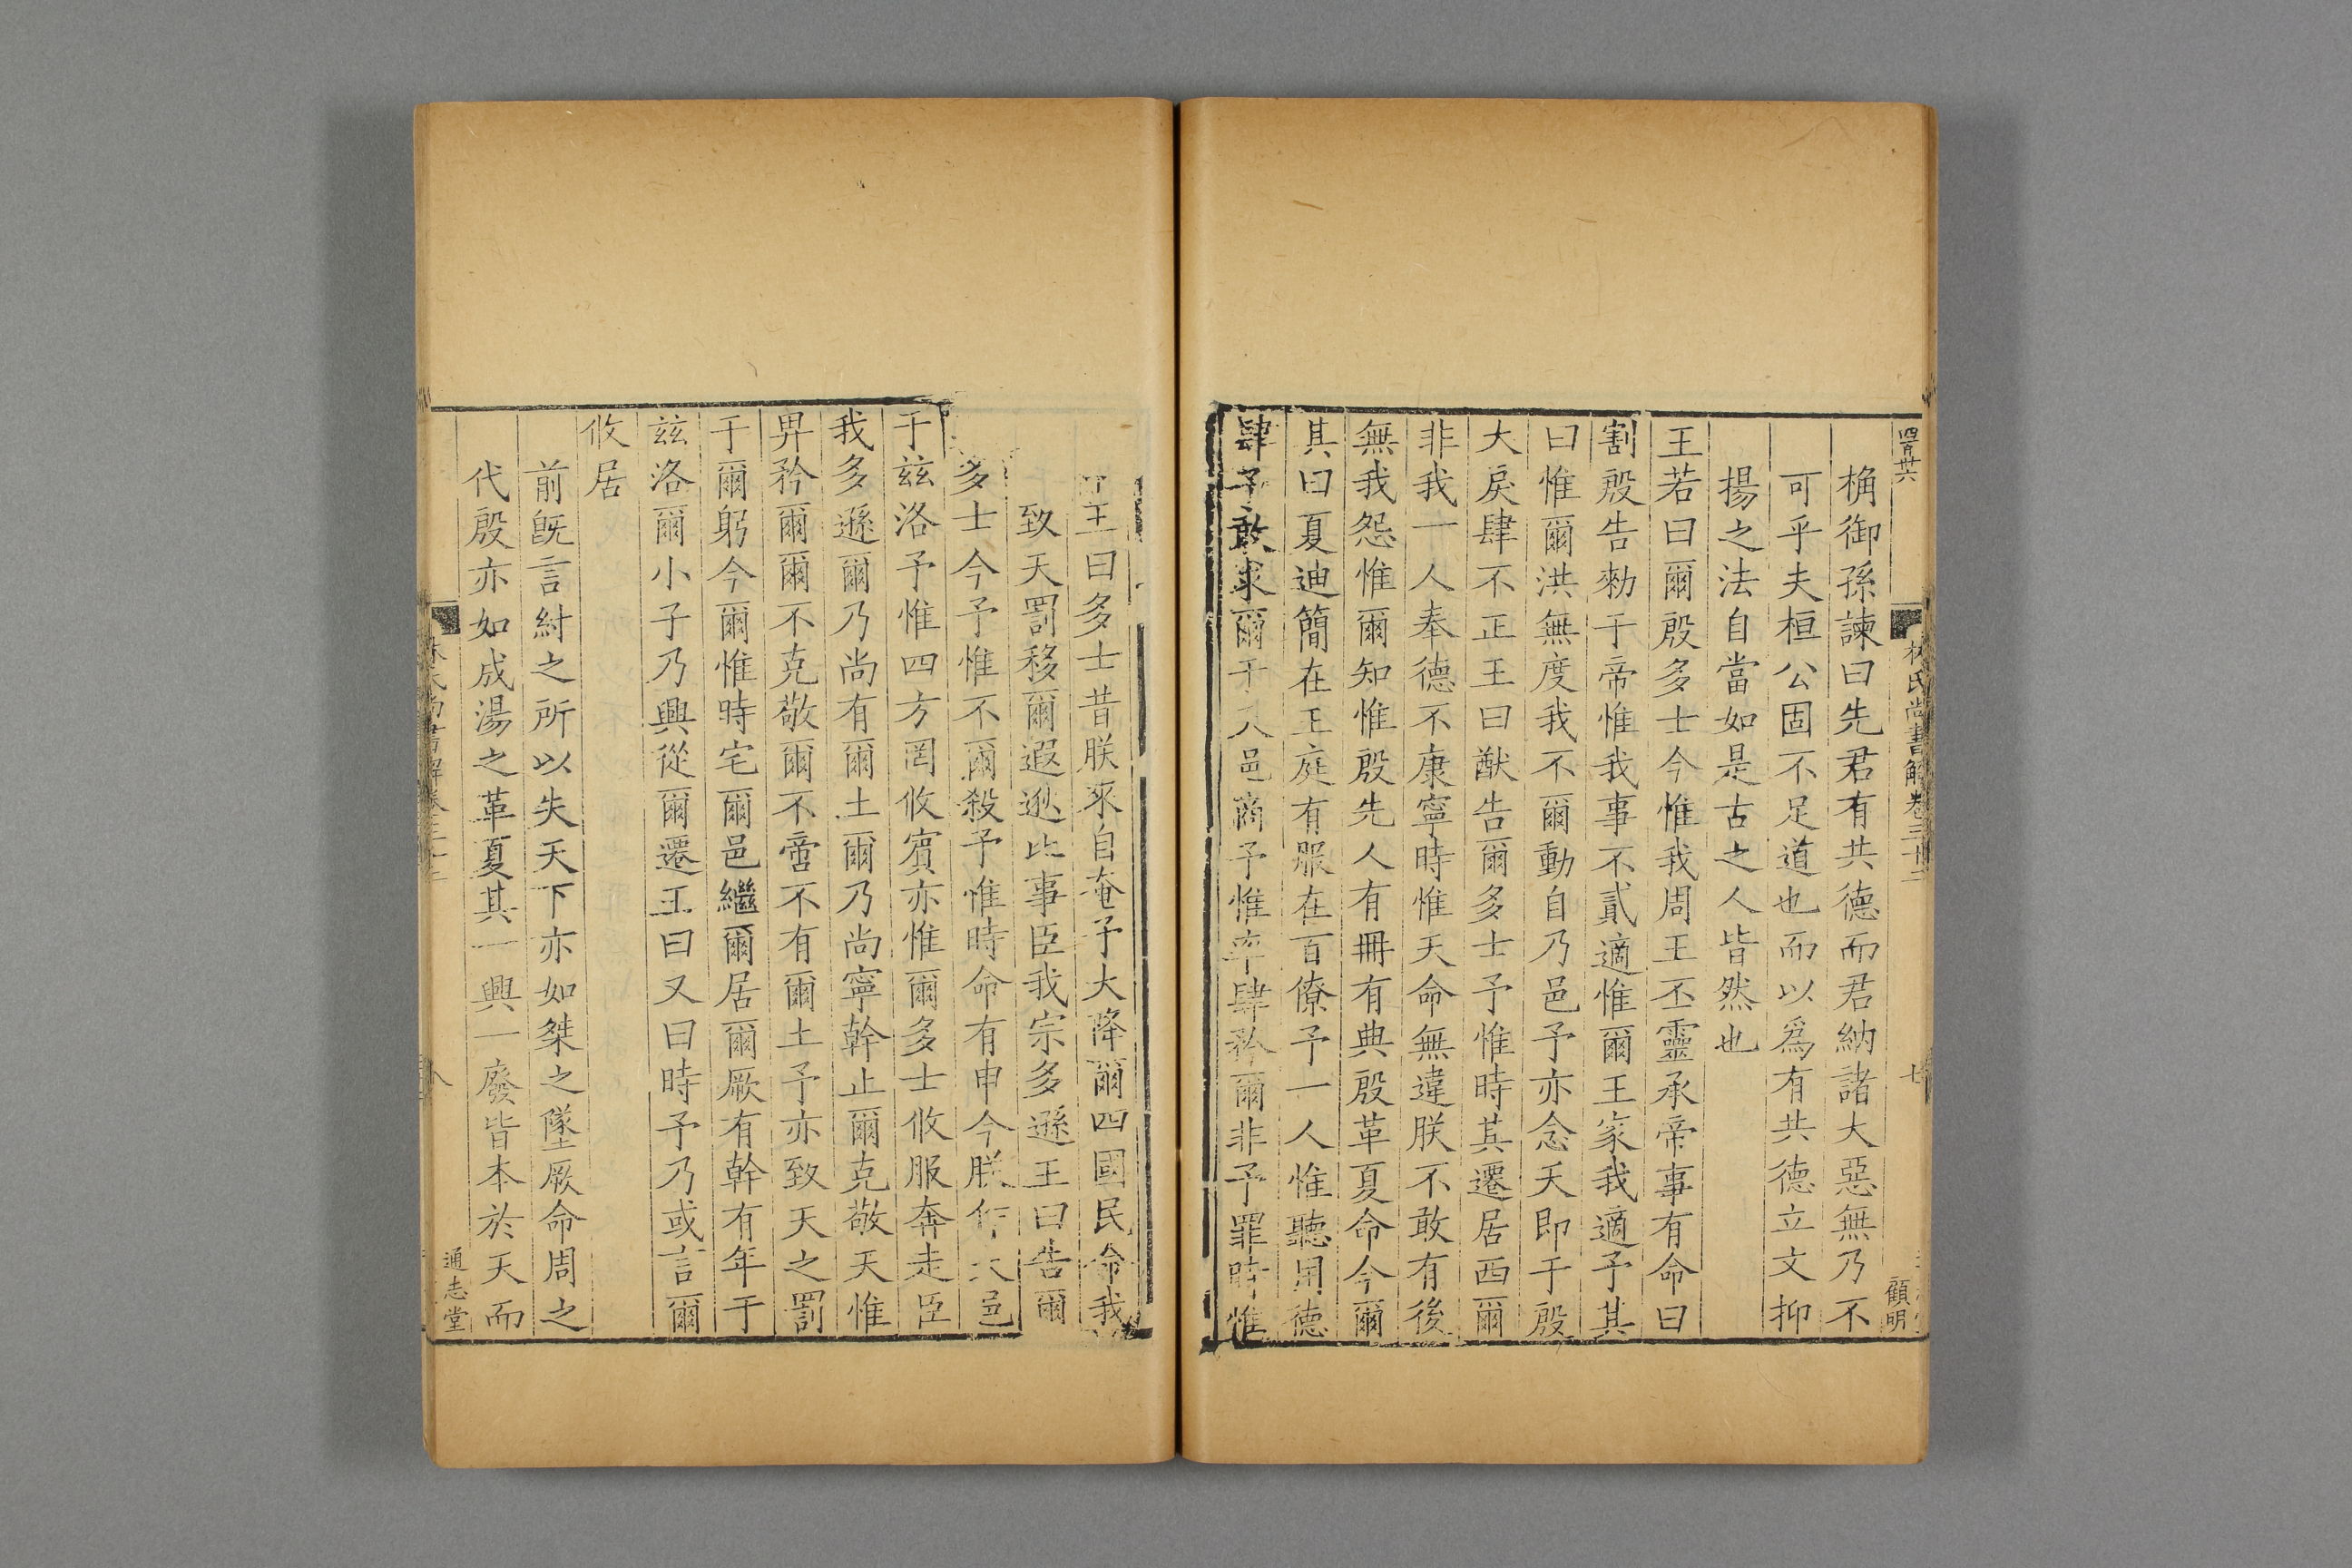 四百廿六
林氏尚書解卷三十二
七
顧明
桷御孫諫曰先君有共德而君納諸大惡無乃不
可乎夫桓公固不足道也而以爲有共德立文抑
揚之法自當如是古之人皆然也
王若曰爾殷多士今惟我周王丕靈承帝事有命曰
割殷告勑于帝惟我事不貳適惟爾王家我適予其
曰惟爾洪無度我不爾動自乃邑予亦念天即于殷
大戾肆不正王曰猷告爾多士予惟時其遷居西爾
非我一人奉德不康寧時惟天命無違朕不敢有後
無我怨惟爾知惟殷先人有冊有典殷革夏命今爾
其曰夏迪簡在王庭有服在百僚予一人惟聽用德
肆予敢求爾于 邑商予惟率肆矜爾非予罪時惟
王曰多士昔朕來自奄予大降爾四國民命我
致天罰移爾遐逖比事臣我宗多遜王曰告爾
多士今予惟不爾殺予惟時命有申今朕作大邑
于玆洛予惟四方罔攸賓亦惟爾多士攸服奔走臣
我多遜爾乃尚有爾土爾乃尚寧幹止爾克敬天惟
畀矜爾爾不克敬爾不啻不有爾土予亦致天之罰
于爾躬今爾惟時宅爾邑繼爾居爾厥有幹有年于
玆洛爾小子乃興從爾遷王曰又曰時予乃或言爾
攸居
前旣言紂之所以失天下亦如桀之墜厥命周之
代殷亦如成湯之革夏其一興一廢皆本於天而
林氏尚書解卷三十二
八
通志堂